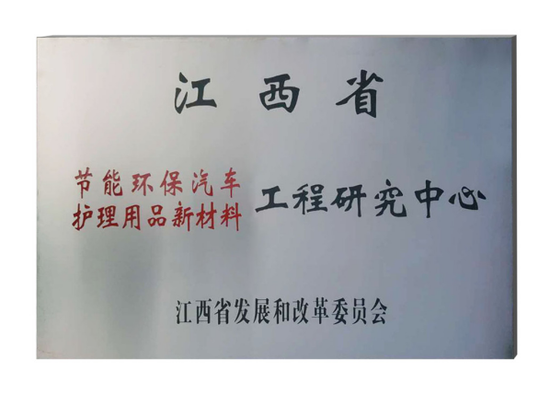 江西省
节能环保汽车
护理用品新材料
工程研究中心
江西省发展和改革委员会